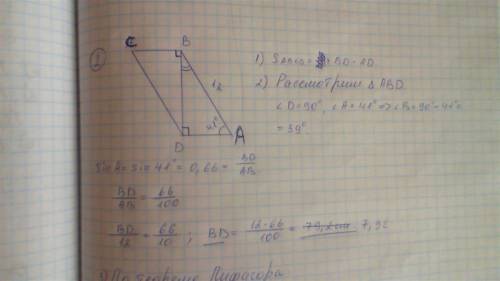 2
C B
12
41°
D A
1) S ABCD = BD · AD
2) Рассмотрим Δ ABD
∠D=90°, ∠A=41° => ∠B=90°-41°=
= 39°
sin A = sin 41° = 0,66 = BD/AB
BD/AB = 66/100
BD/12 = 66/10 ; BD = 12·66/100 = 79,2 см 7,92
По теореме Пифагора